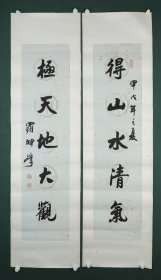 得山水清氣
甲戌年之夏
極天地大觀